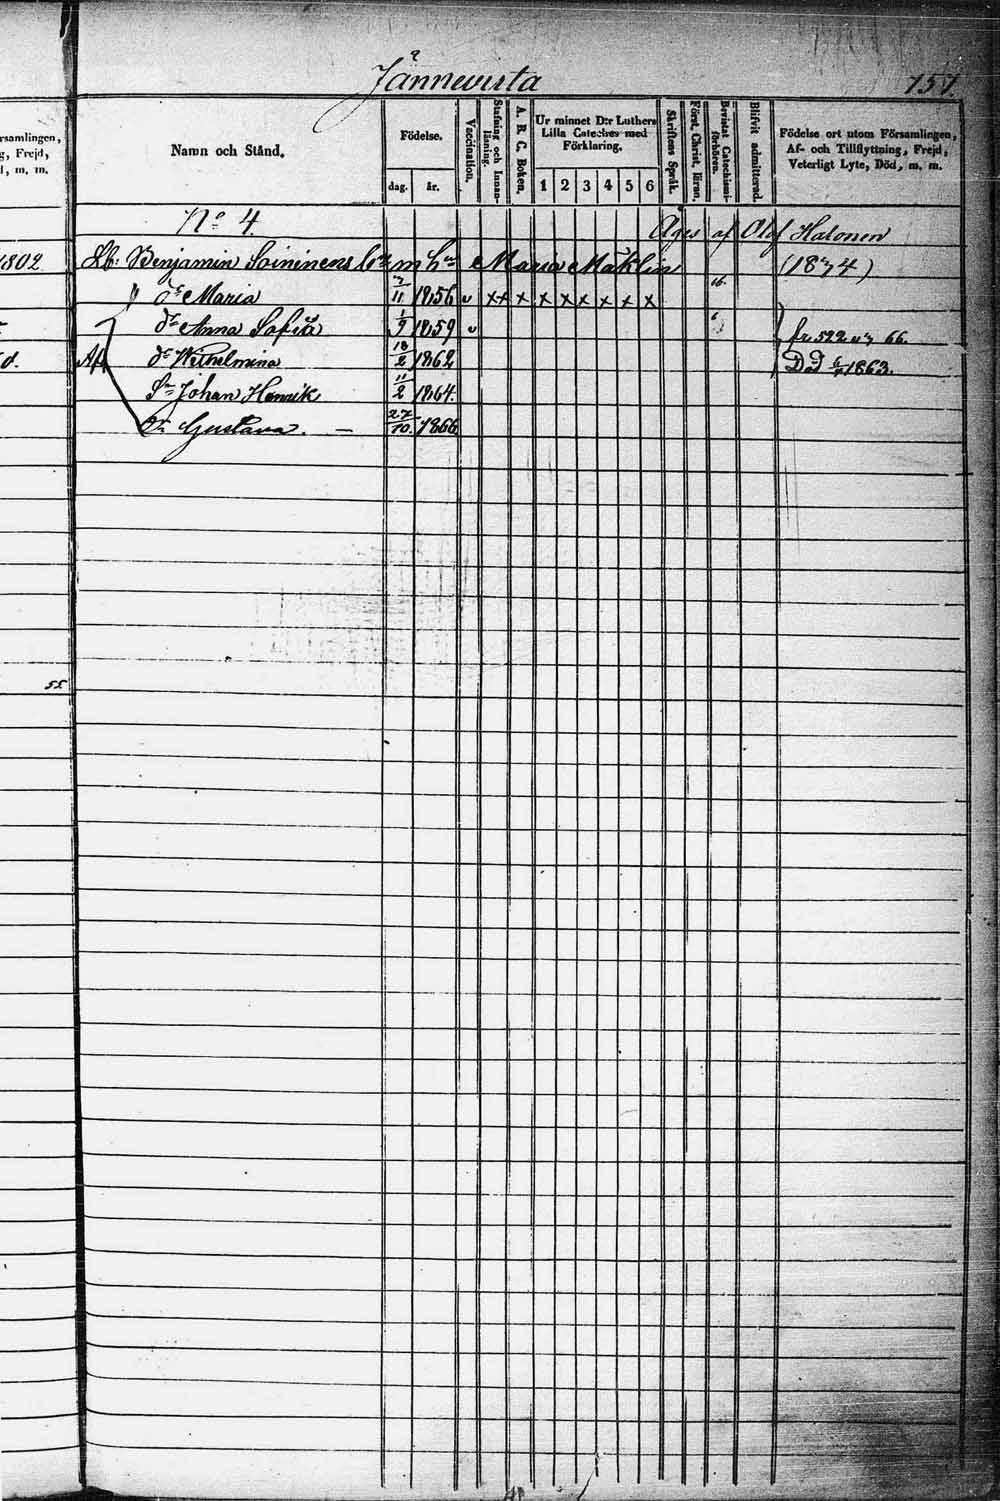 Jännevirta 751.
rsamlingen, Namn och Stånd. Födelse. Vaccination. Stafning och Innan-läsning. A. B. C. Boken. Ur minnet D:r Luthers Lilla Cateches med Förklaring. Skriftens Språk. Först. Christ. läran. Bevistat Catechismi-förhören. Blifvit admitterad. Födelse ort utom Församlingen, Af- och Tillflyttning, Frejd, Veterligt Lyte, Död, m. m.
g, Frejd,
d, m. m.
dag. år. 1 2 3 4 5 6
No 4. Äges af Olof Halonen
1802. Benjamin Soininens m hu Maria Mäklin (1874)
" dr Maria 7/11 1856 v ×× × × ×× × × × × 16.
dr Anna Sofia 1/9 1859 v 6 fr 522 66.
d. Af dr Wilhelmina 18/2 1862 Död 6/4 1863.
Sn Johan Henrik 11/2 1864.
dr Gustava. — 27/10 1866
55.